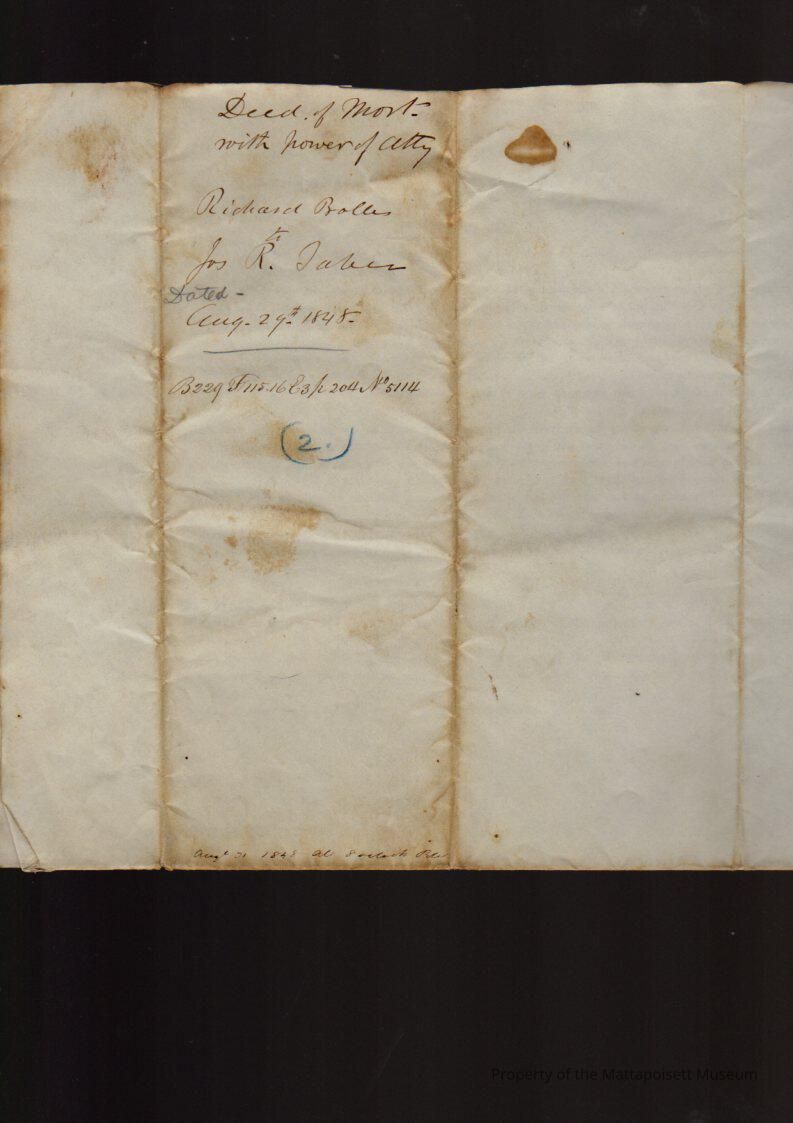 Deed. of Mort.
with power of Atty
Richard Bolles
to
Jos R. Taber
Dated -
Aug. 29th 1848.
B 229 F 115.16 E3 p 204 No 5114
(2.)
Augt 31 1848 at 8 oclock
Property of the Mattapoisett Museum